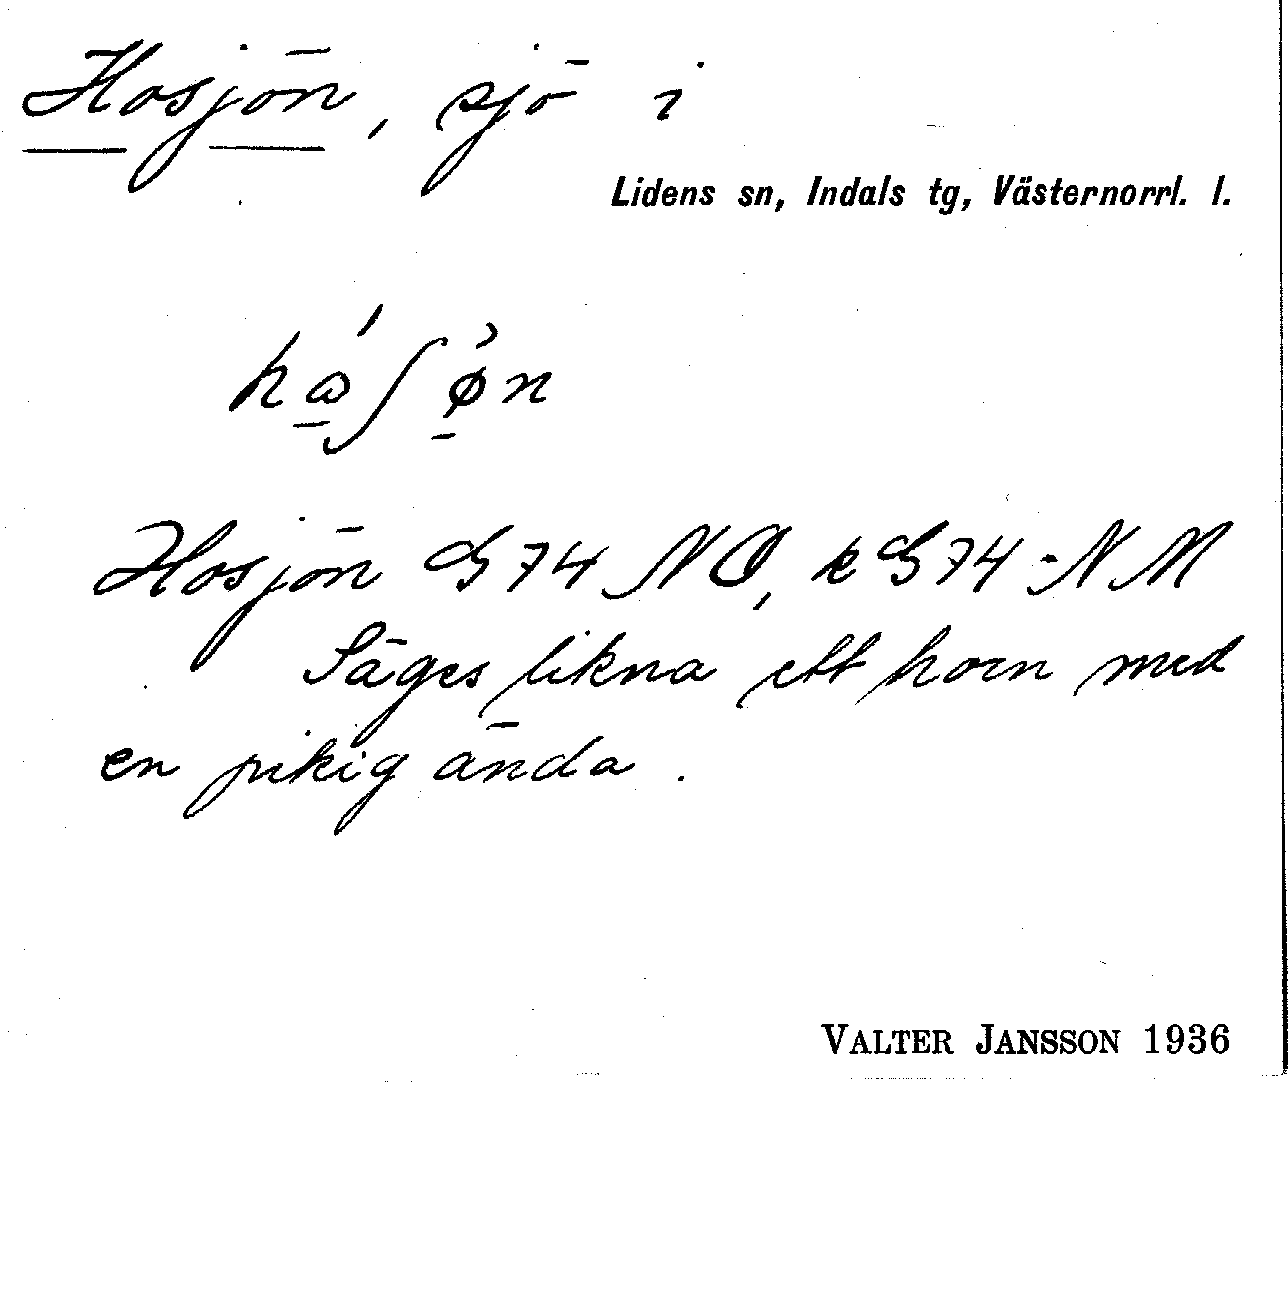 Hosjön, sjö i
Lidens sn, Indals tg, Västernorrl. l.
Hosjön G74 NO, k G74-NM
Säges likna ett horn med
en pikig ända.
VALTER JANSSON 1936